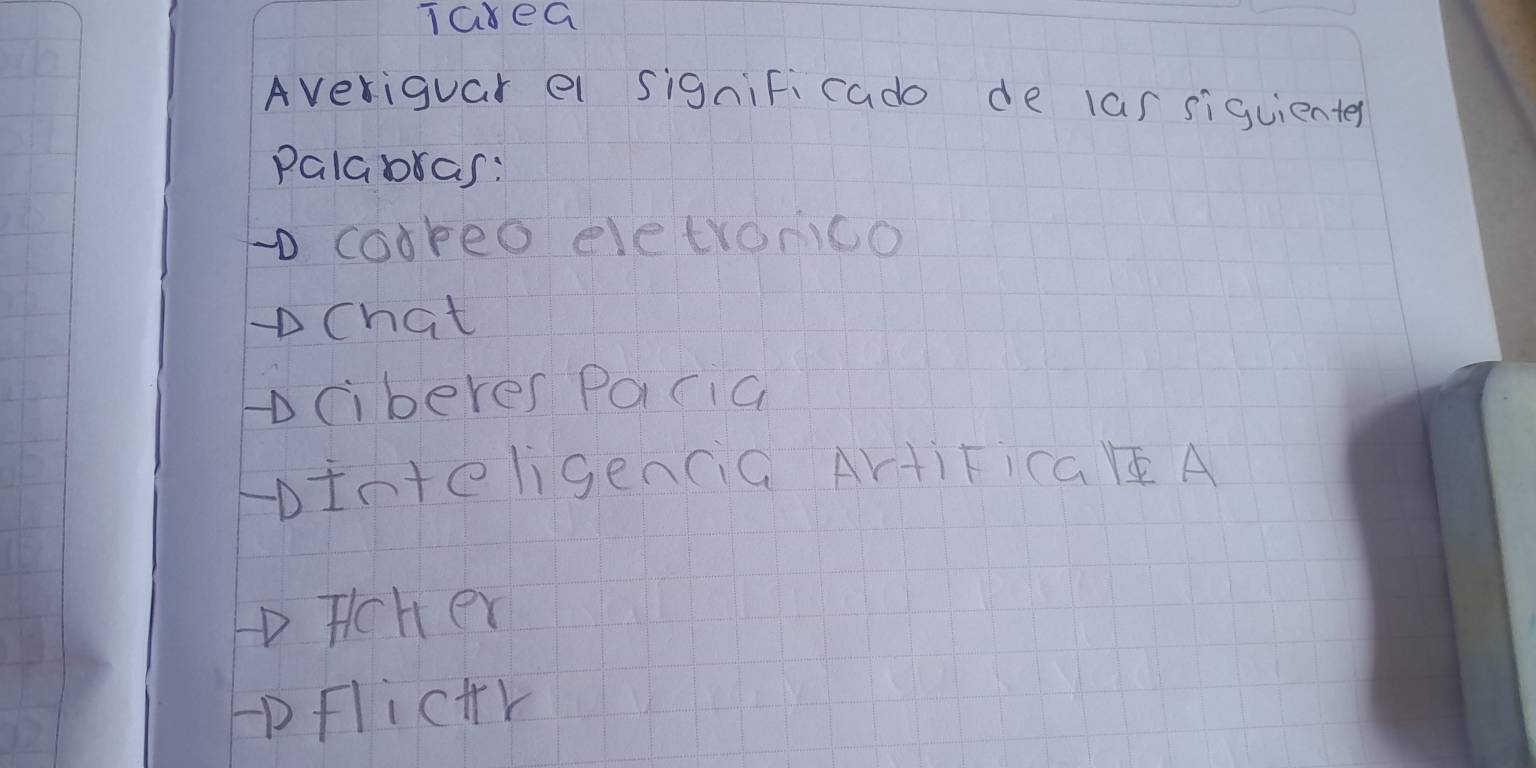 Tarea
Averiguar el significado de las siguientes
Palabras:
→ correo eletronico
→ Chat
→ Ciberes Pacia
→ Inteligencia Artifical IA
→ HcHer
→ Flickr